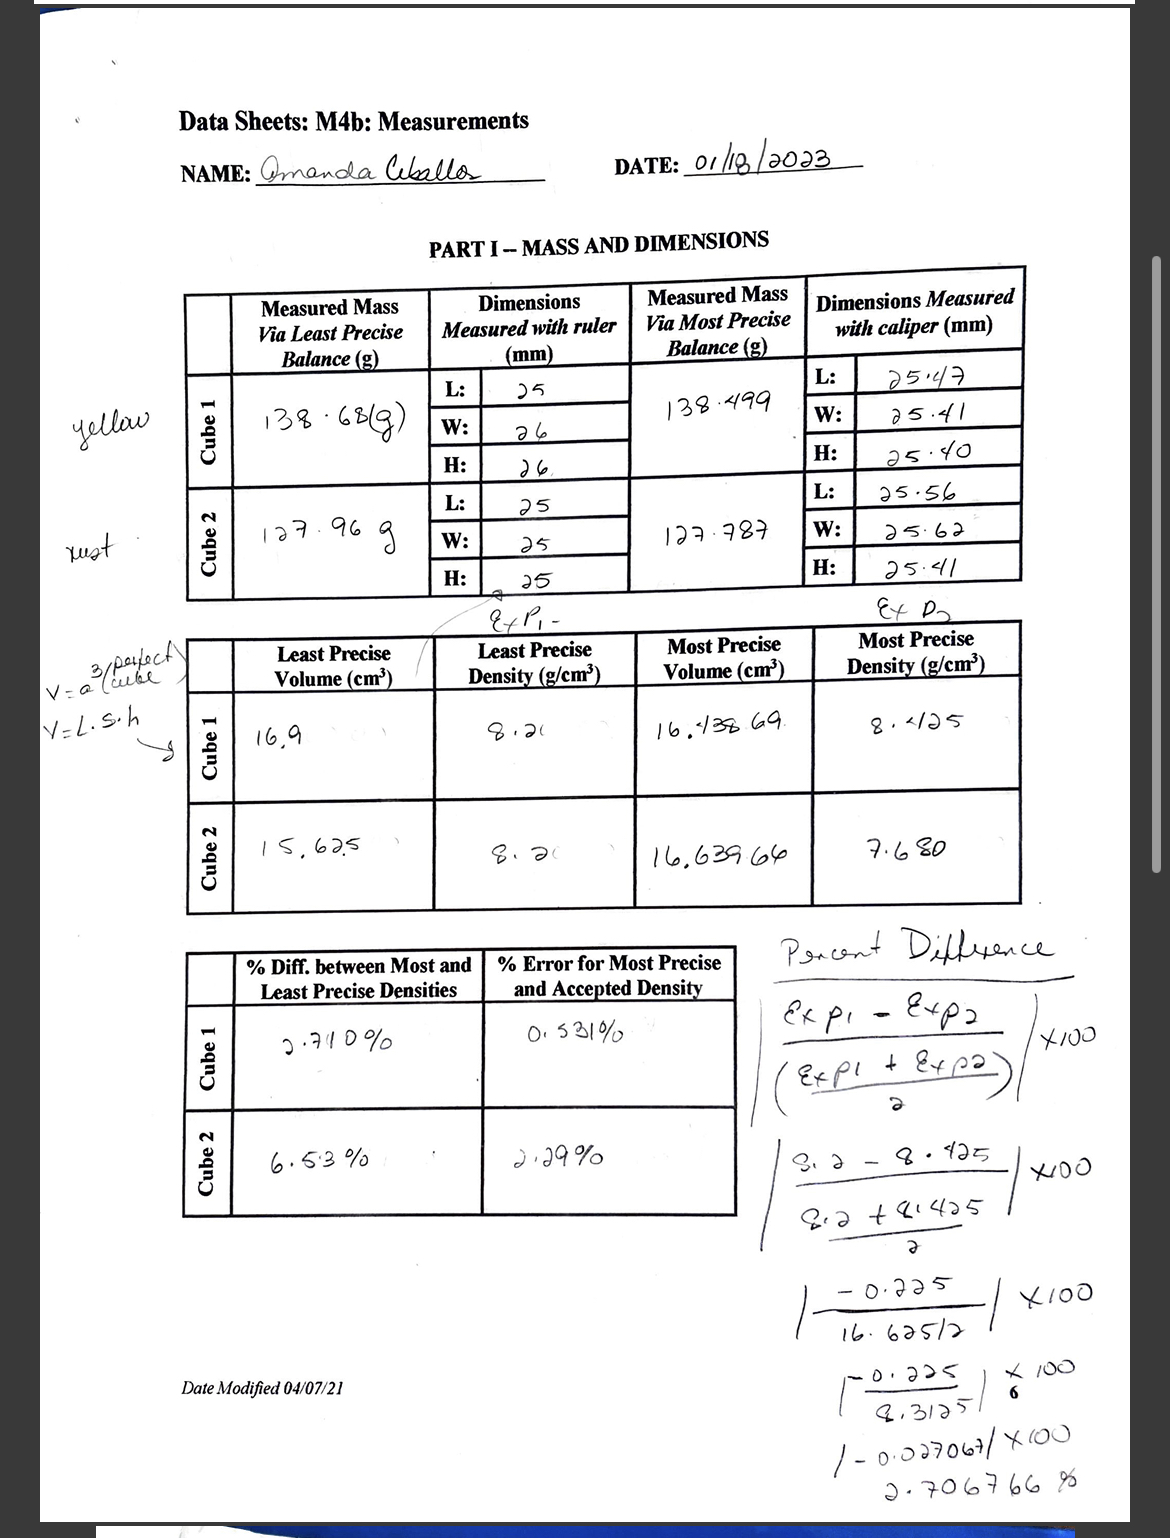 Data Sheets: M4b: Measurements
NAME: Amanda Ceballos DATE: 01/18/2023
PART I – MASS AND DIMENSIONS
Measured Mass Via Least Precise Balance (g)
Dimensions Measured with ruler (mm)
Measured Mass Via Most Precise Balance (g)
Dimensions Measured with caliper (mm)
yellow
Cube 1
138.68(g)
L: 25
W: 26
H: 26
138.499
L: 25.47
W: 25.41
H: 25.40
rust
Cube 2
127.96 g
L: 25
W: 25
H: 25
127.787
L: 25.56
W: 25.62
H: 25.41
Exp1 -
V=a³ (perfect cube)
V=L.S.h
Least Precise Volume (cm³)
Least Precise Density (g/cm³)
Most Precise Volume (cm³)
Most Precise Density (g/cm³)
Cube 1
16.9
8.2
16.43869
8.425
Cube 2
15.625
8.2
16.63966
7.680
% Diff. between Most and Least Precise Densities
% Error for Most Precise and Accepted Density
Cube 1
2.710%
0.531%
Cube 2
6.53%
2.29%
Percent Difference
Exp1 - Exp2
(Exp1 + Exp2)
2
x100
8.2 - 8.425
8.2 + 8.425
2
x100
-0.225
16.625/2
x100
-0.225
8.3125
x 100
6
|-0.027067| x100
2.706766 %
Date Modified 04/07/21